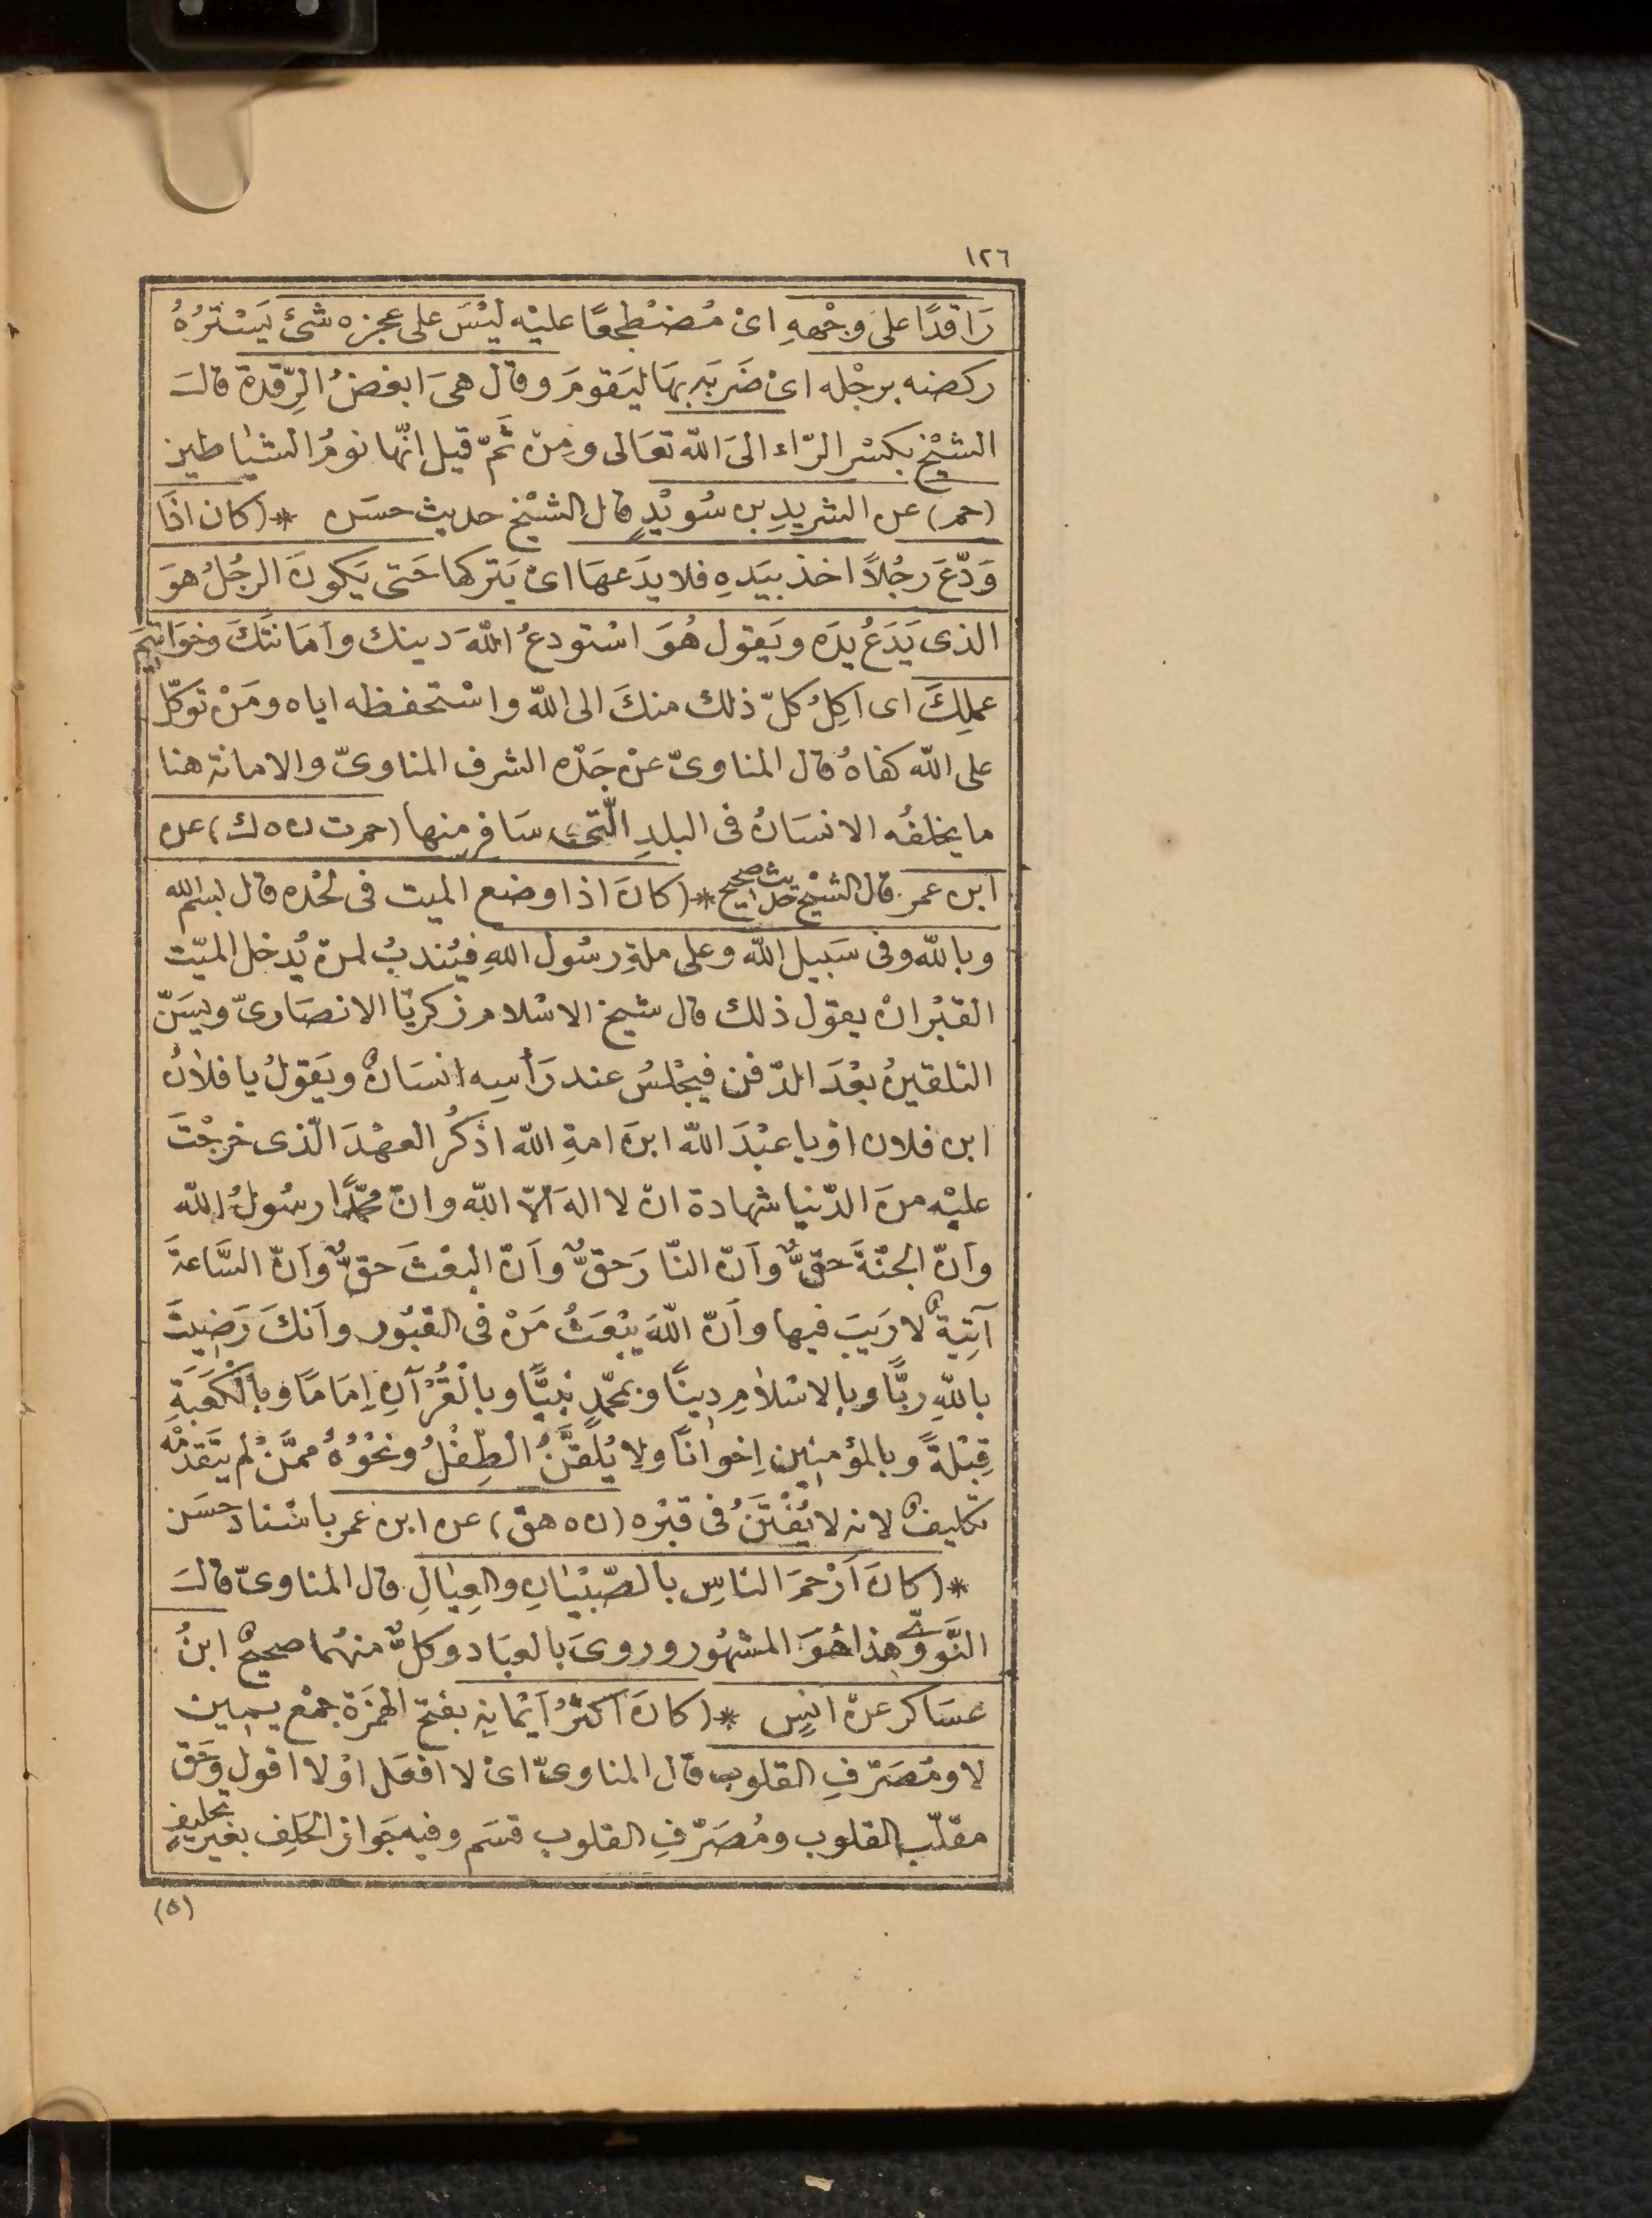 ١٢٦
رَاقدًا على وجْههِ اىْ مُضْطجعًا عليْه ليْسَ على عجزه شئ يَسْترُهُ
ركضه برجْله اىْ ضَرَبَه بهَا ليَقومَ وقال هىَ ابغضُ الرِّقدة قالَ
الشيْخ بكسْر الرّاء الىَ الله تعَالى ومنْ ثَمّ قيل انّها نومُ الشيٰاطين
(حم) عن الشريدِ بن سُويْدٍ قال الشيْخ حديث حسَن * (كان اذَا
وَدّعَ رجُلاً اخذ بيَدهِ فلا يدَعهَا اىْ يَتركها حَتى يَكونَ الرجُلُ هوَ
الذى يَدَعُ يدَه ويَقول هُوَ اسْتودعُ اللهَ دينك وأمَانتَكَ وخوَاتيمَ
عملِكَ اى اكِلُ كلّ ذلك منكَ الى الله واسْتحفظه اياه ومَنْ توَكّل
على الله كفاهُ قال المناوىّ عنْ جَدّه الشرف المناوىّ والامانة هنا
ما يخلفُه الانسَانُ فى البلدِ الّتى سَافر منها (حم ت ن ه ك) عن
ابن عمر قال الشيْخ حديث صحيح * (كانَ اذا وضع الميت فى لحْده قال بسم الله
وبالله وفى سَبيل الله وعلى ملةِ رسُول اللهِ فيُندبُ لمن يُدخل الميّت
القبْر انْ يقول ذلك قال شيخ الاسْلام زكريّا الانصَارىّ ويسَنّ
التلقينُ بعْدَ الدّفن فيجْلسُ عند رَأسِه انسَانٌ ويَقولُ يا فلانُ
ابن فلان اوْ يا عبْدَ الله ابنَ امةِ الله اذكُر العهْدَ الّذى خرجْتَ
عليْه منَ الدّنيا شهادة انْ لا الهَ الاّ الله وانّ محمّدًا رسُولُ الله
وانّ الجنّةَ حقٌّ وأنّ النّارَ حقٌّ وأنّ البعْثَ حقٌّ وأنّ السَّاعةَ
آتِيةٌ لا رَيبَ فيها وأنّ اللهَ يبْعَثُ مَنْ فى القبُور وأنكَ رَضِيتَ
باللهِ ربًّا وبالاسْلامِ دِينًا وبمحمّدٍ نبيًّا وبالْقُرْآنِ اِمَامًا وبالْكَعْبَةِ
قِبْلةً وبالمؤمنِين اِخوانًا ولا يُلقَّنُ الطِفْلُ ونحْوُهُ ممَّنْ لم يتَقدّمْه
تكليفٌ لانه لا يُفْتَنُ فى قبْره (ن ه هق) عن ابن عمر باسْناد حسَن
* (كانَ أرْحمَ الناسِ بالصّبْيٰانِ والعِيٰالِ قال المناوىّ قالَ
النَّوَوىّ هذا هُوَ المشهُور وروىَ بالعبَاد وكلٌّ منهُما صحيحٌ ابنُ
عسَاكر عنْ انسٍ * (كانَ اكثَرُ اَيْمانِه بفتح الهمْزَة جمْع يمين
لا ومُصَرّفِ القلوب قال المناوىّ اىْ لا افعَل اوْ لا اقول وحَق
مقلّب القلوب ومُصَرّفِ القلوب قسَم وفيه جَواز الحَلِف بغير تحليف
(٥)